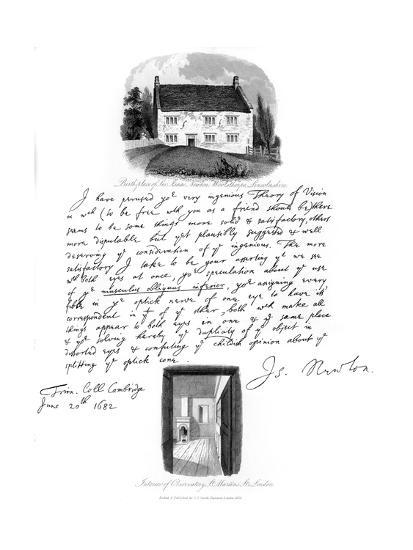 Birth place of Sir Isaac Newton, Woolsthorpe, Lincolnshire
I have perused yr very ingenious Theory of Vision
in wch (to be free with you as a friend should be) there
seems to be some things more solid & satisfactory, others
more disputable but yet plausibly suggested & well
deserving ye consideration of ye ingenious. The more
satisfactory I take to be your asserting yt we see
wth both eyes at once, yr speculation about ye use
of ye musculus obliquus inferior, yr assigning every
fibre in ye optick nerve of one eye to have its
correspondent in yt of ye other, both wch make all
things appear to both eyes in one & ye same place
& yr solving hereby ye duplicity of ye object in
distorted eyes & confuting ye childish opinion about ye
splitting ye optick cone.
Is. Newton.
Trin. Coll Cambridge
June 20th 1682
Interior of Observatory, St Martins St. London